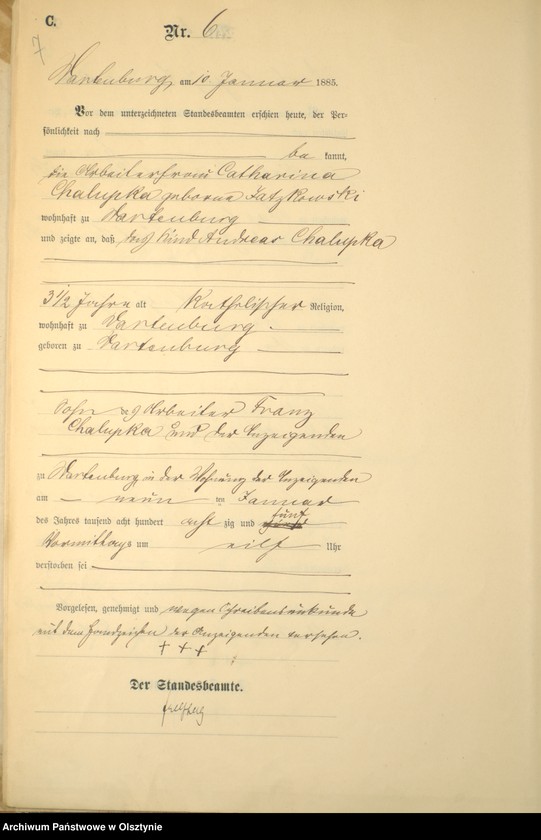 C.
7
Nr. 6
Wartenburg, am 10. Januar 1885.
Vor dem unterzeichneten Standesbeamten erschien heute, der Per-
sönlichkeit nach
be kannt,
die Arbeiterfrau Catharina
Chalupka geborene Jatzkowski
wohnhaft zu Wartenburg
und zeigte an, daß das Kind Andreas Chalupka
3 1/2 Jahre alt Katholischer Religion,
wohnhaft zu Wartenburg
geboren zu Wartenburg
Sohn des Arbeiter Franz
Chalupka und der Anzeigenden
zu Wartenburg, in der Wohnung der Anzeigenden
am neun ten Januar
fünf
des Jahres tausend acht hundert acht zig und
Vormittags um eilf Uhr
verstorben sei
Vorgelesen, genehmigt und wegen Schreibensunkunde
mit dem Handzeichen der Anzeigenden versehen.
+ + +
Der Standesbeamte.
Archiwum Państwowe w Olsztynie